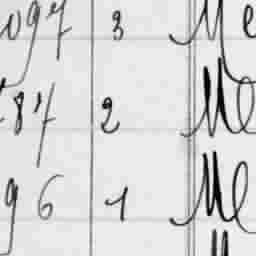 097 3 Me
87 2 Me
96 1 Me